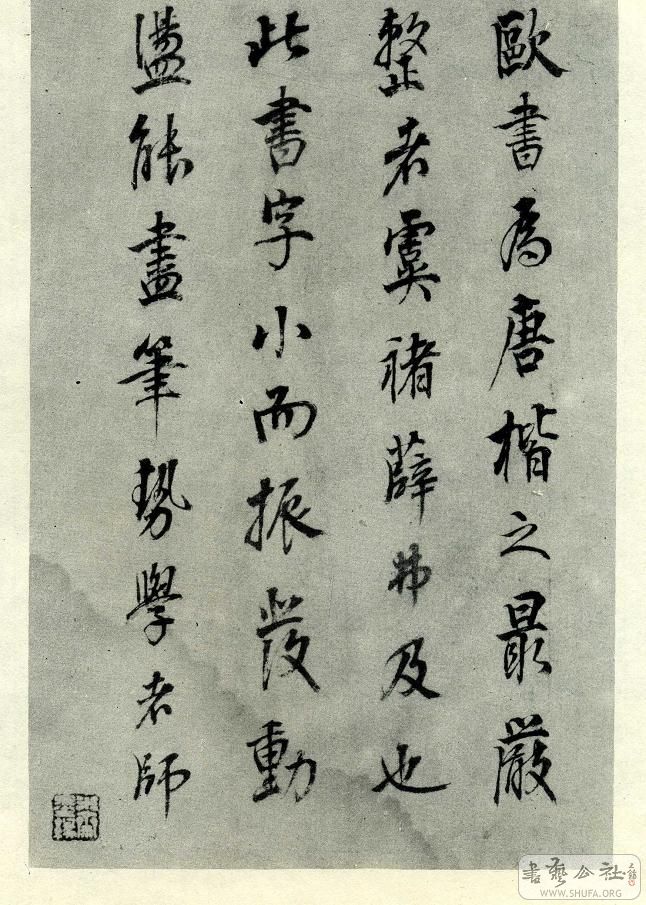 歐書為唐楷之最嚴
整者虞褚薛弗及也
此書字小而振發動
盪能盡筆勢學者師
書藝公社
WWW.SHUFA.ORG